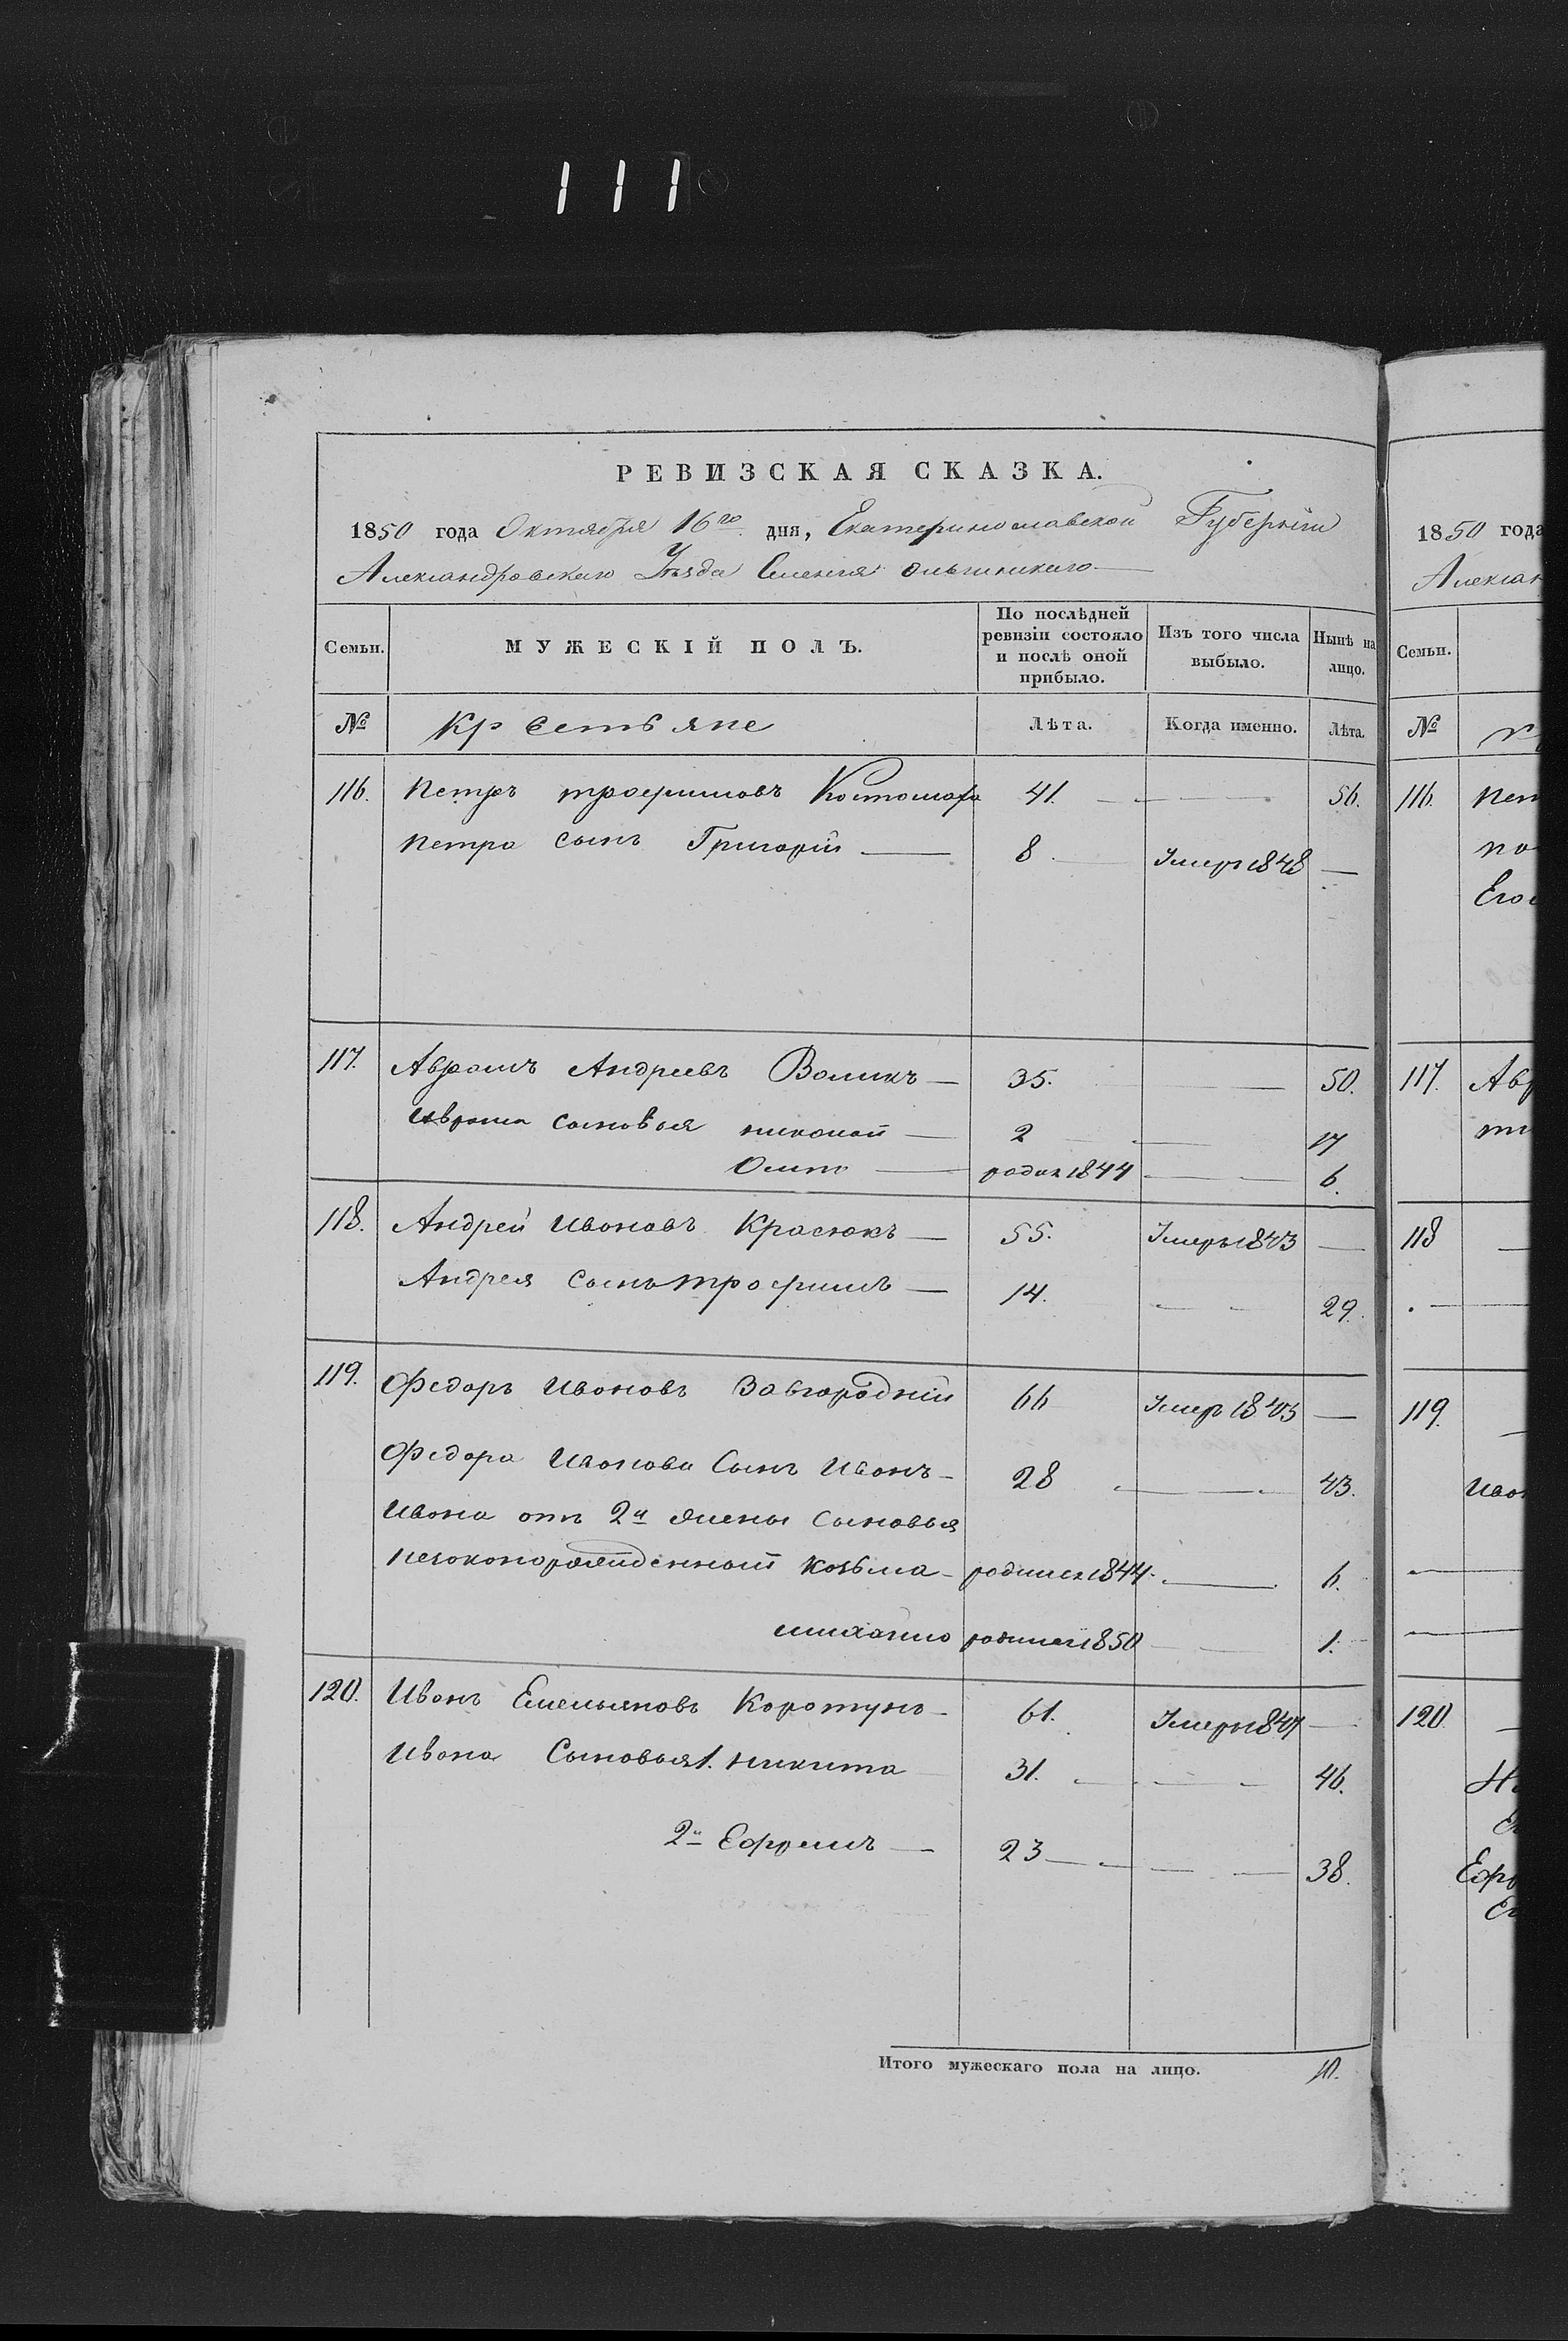 111
РЕВИЗСКАЯ СКАЗКА.
1850 года Октября 16го дня, Екатеринославской Губерніи
Александровскаго Уѣзда Селенія
Семьи. МУЖЕСКІЙ ПОЛЪ. По послѣдней ревизіи состояло и послѣ оной прибыло. Изъ того числа выбыло. Нынѣ на лицо.
№ Крестьяне Лѣта. Когда именно. Лѣта.
116. Петръ Трофимовъ Костомаха 41. 56.
Петра сынъ Григорій 8 Умеръ 1848 —
117. Аврамъ Андреевъ Воликъ 35. 50.
Аврама сыновья Николай 2 17
родил 1844 6.
118. Андрей Ивановъ Красюкъ 55. Умеръ 1843 —
Андрея сынъ Трофимъ 14. 29.
119. Федоръ Ивановъ Завгородній 66 Умеръ 1843 —
Федора Иванова Сынъ Иванъ 28 43.
Ивана отъ 2й жены сыновья
незаконорожденный Козьма родился 1844 6.
Михайло родился 1850 1.
120. Иванъ Емельяновъ Коротунъ 61. Умеръ 1847 —
Ивана Сыновья 1. Никита 31. 46.
2й Ефремъ 23 38.
Итого мужескаго пола на лицо. 10.
1850 года
Алексан
Семьи.
№
116. Пет
по
Его
117. Авр
118
119.
Иван
120
Ефр